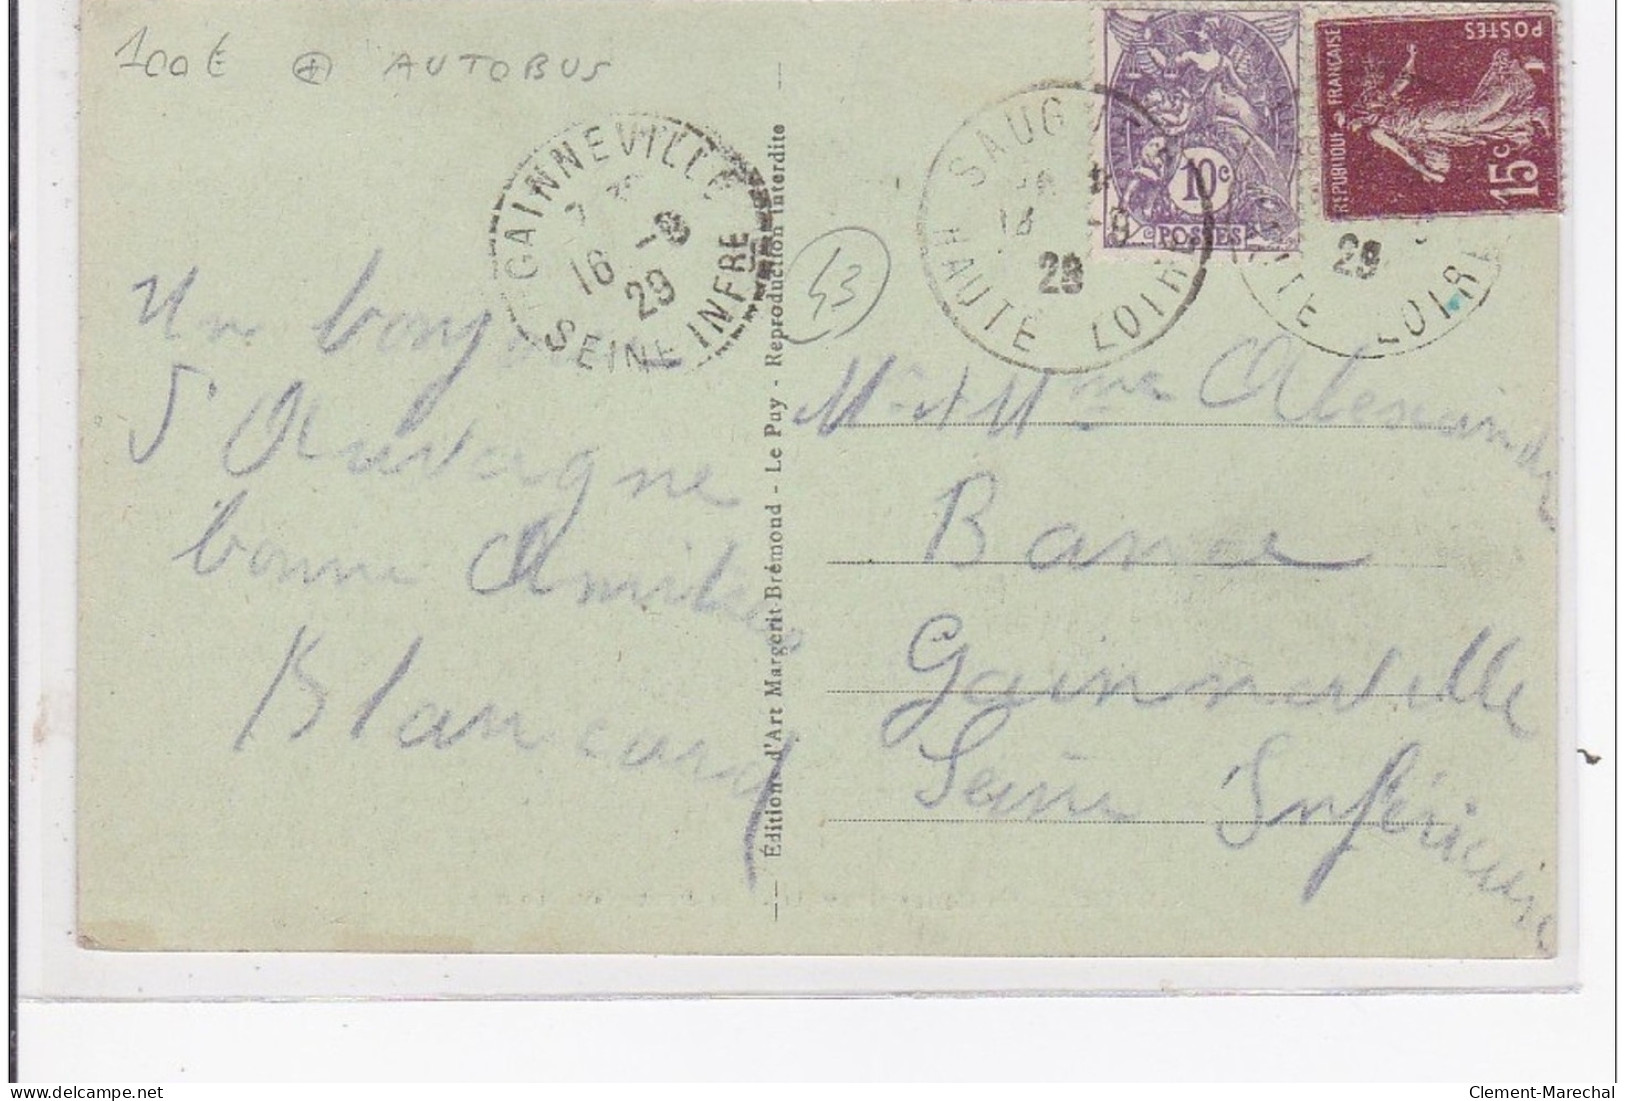 100€ + AUTOBUS
GAINNEVILLE
16 -9
29
SEINE INFRE
SAUG
13 -9
29
HAUTE LOIRE
10c
POSTES
REPUBLIQUE FRANÇAISE
POSTES
15c
29
LOIRE
43
Un bonjour
d'Auvergne
bonne Amitiés
Blancard
Éditions d'Art Margerit-Brémond - Le Puy - Reproduction interdite
Mr et Mme Alexandre
Bance
Gainneville
Seine Inférieure
Clement-Marechal